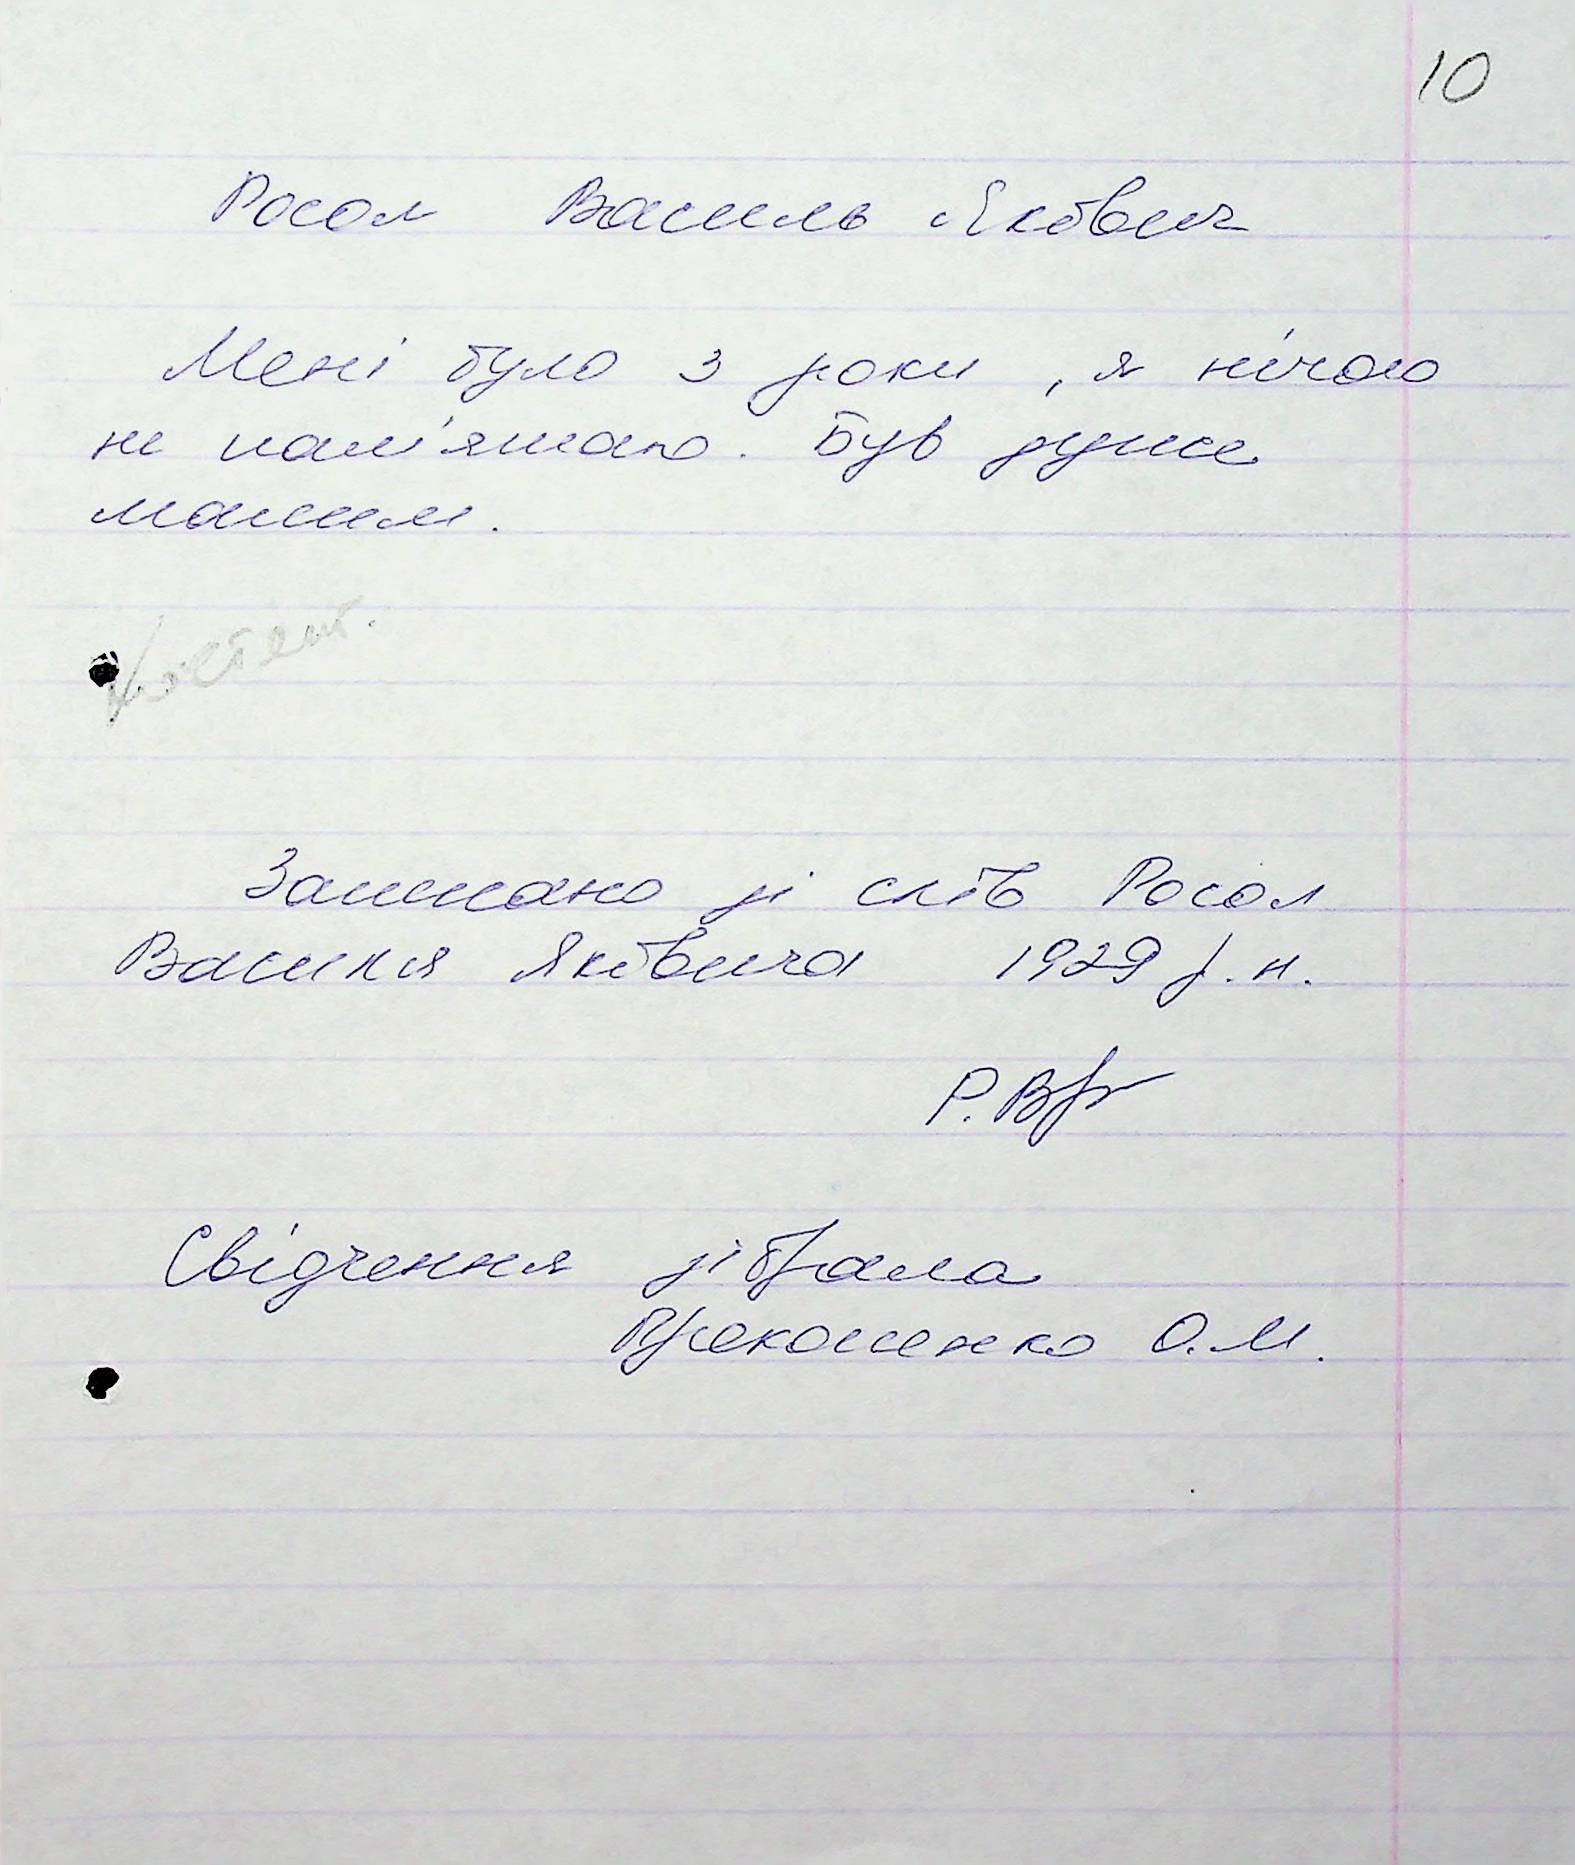 10
Росол Василь Якович
Мені було 3 роки, я нічого
не пам'ятаю. Був дуже
малим.
Записано зі слів Росол
Василя Яковича 1929 р.н.
Р.В
Свідчення зібрала
О.М.